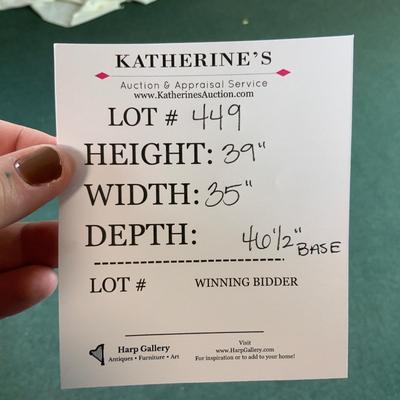 KATHERINE'S
Auction & Appraisal Service
www.KatherinesAuction.com
LOT # 449
HEIGHT: 39"
WIDTH: 35"
DEPTH: 46 1/2" BASE
LOT # WINNING BIDDER
Harp Gallery
Antiques • Furniture • Art
Visit
www.HarpGallery.com
For inspiration or to add to your home!